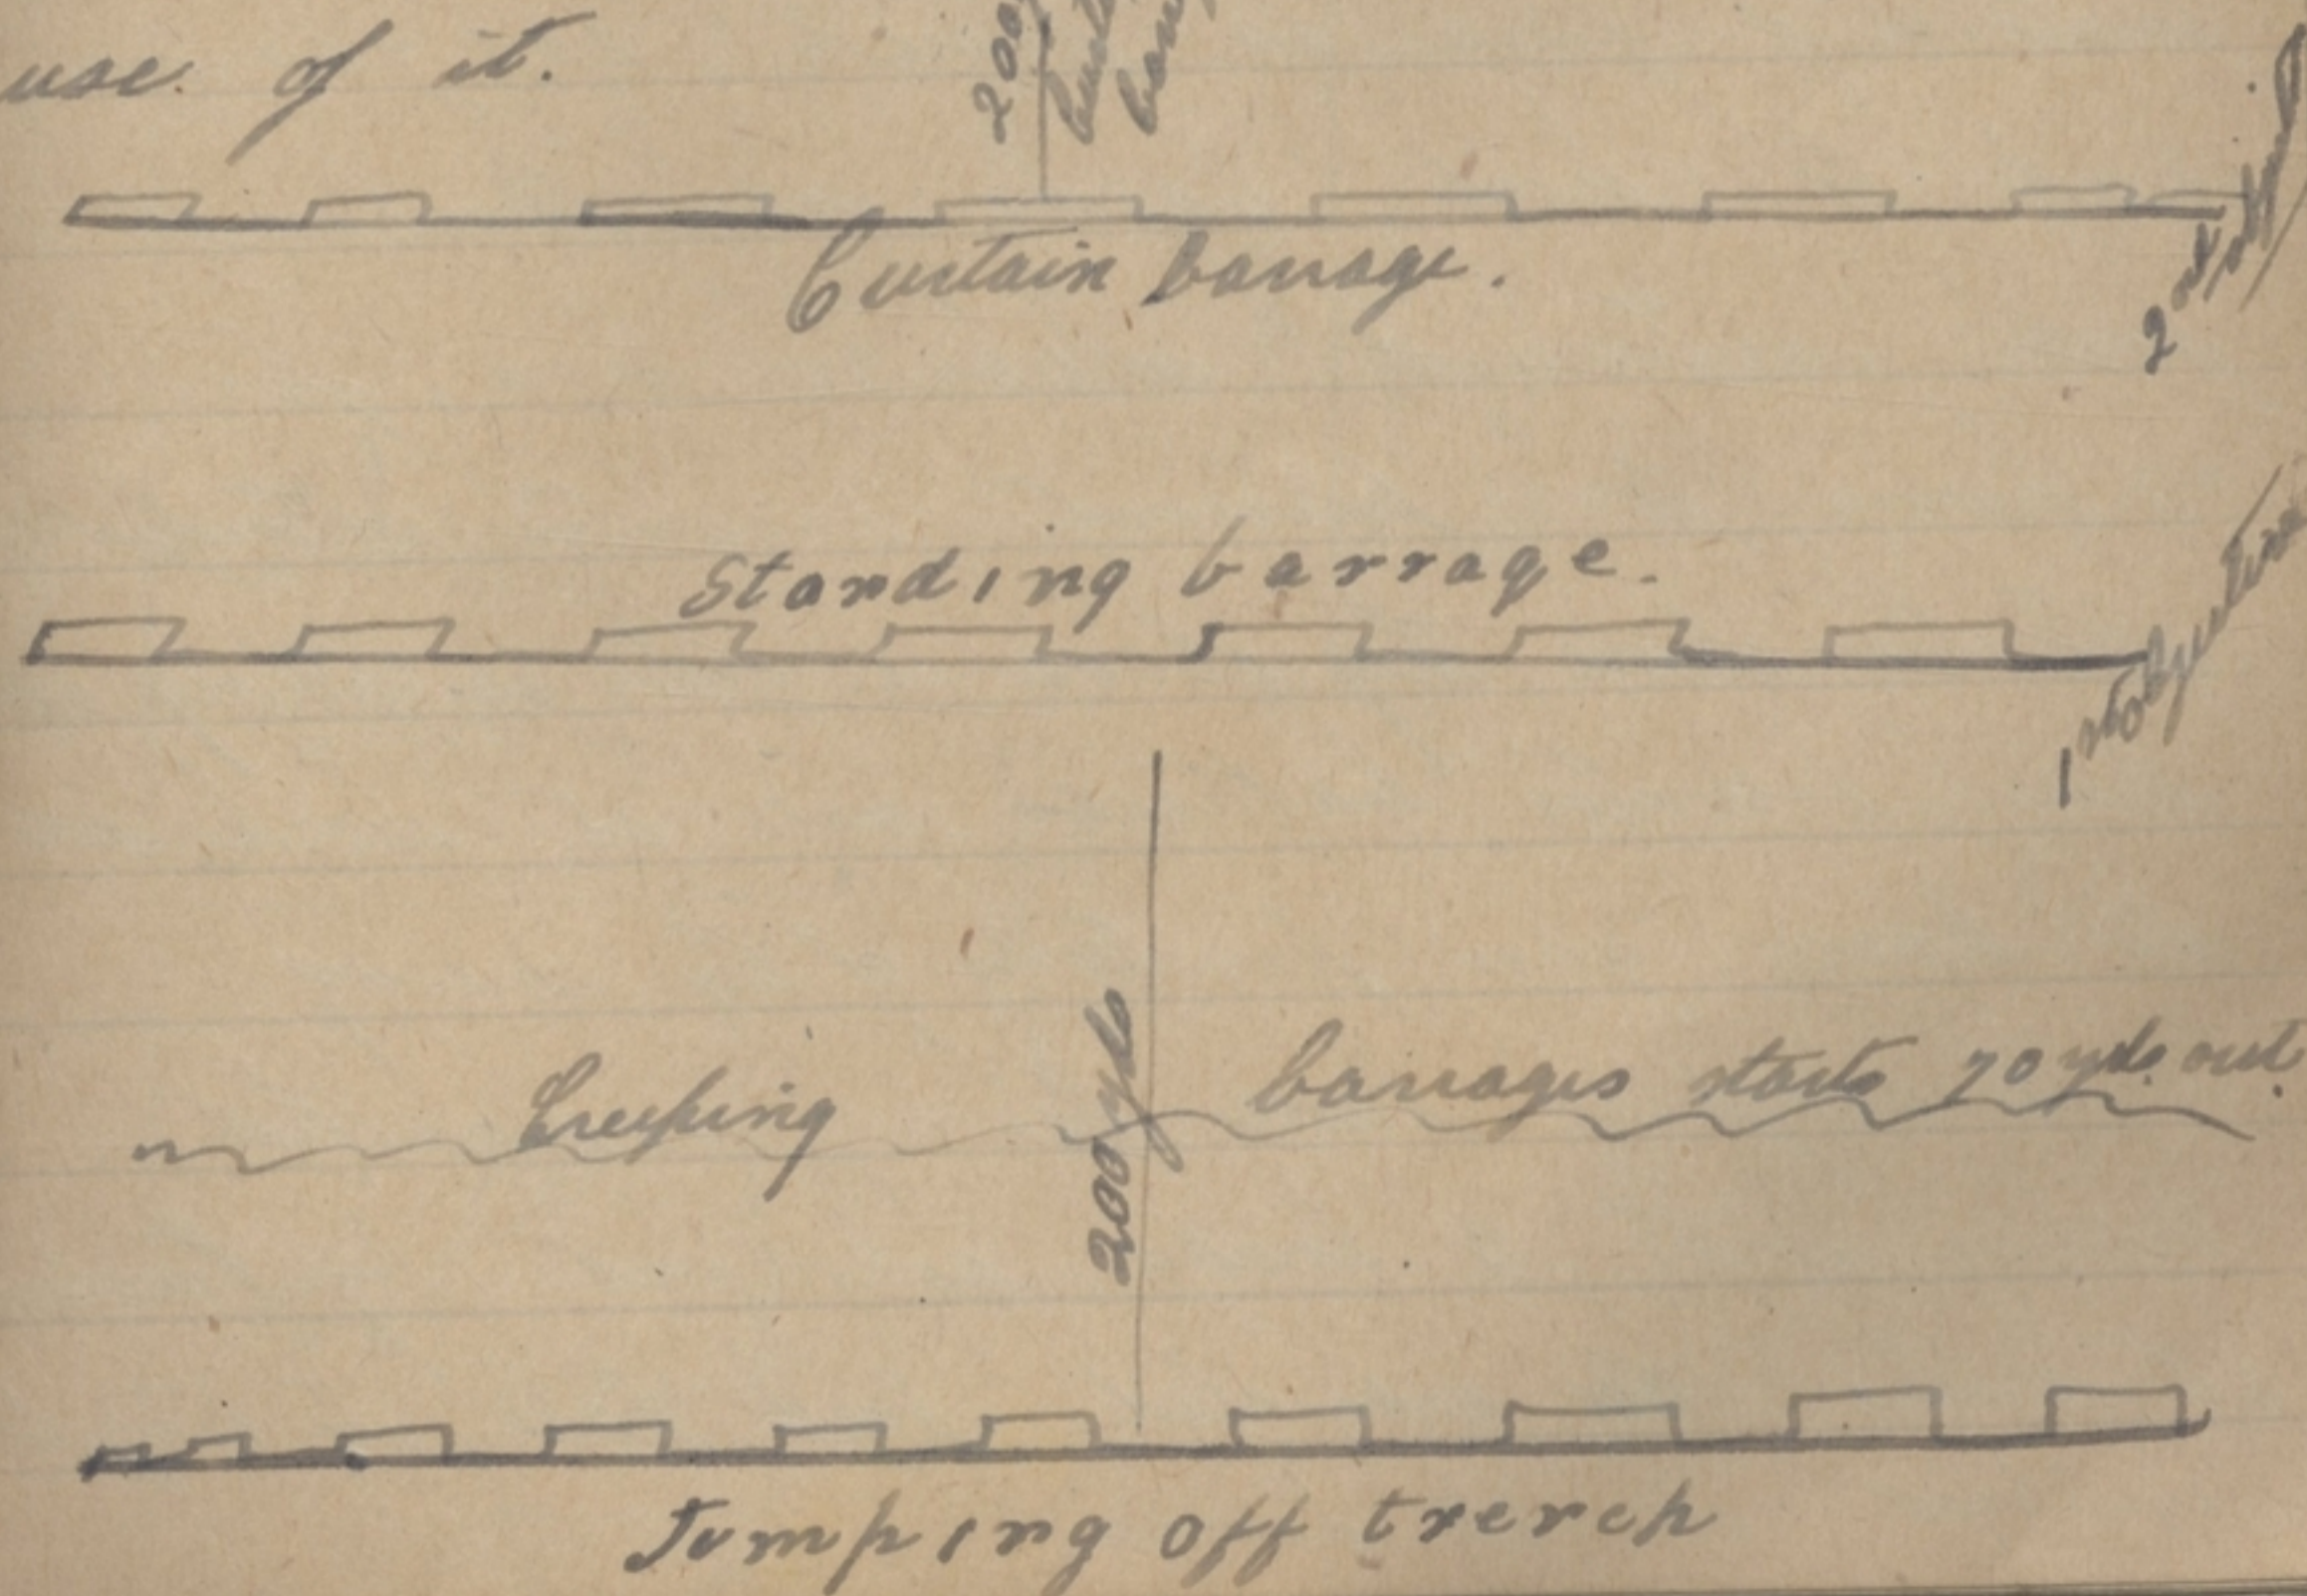 use of it.
200
Curtain barrage.
2nd
Standing barrage.
1st objective
200 yds
Creeping barrages starts 70 yds out.
Jumping off trench